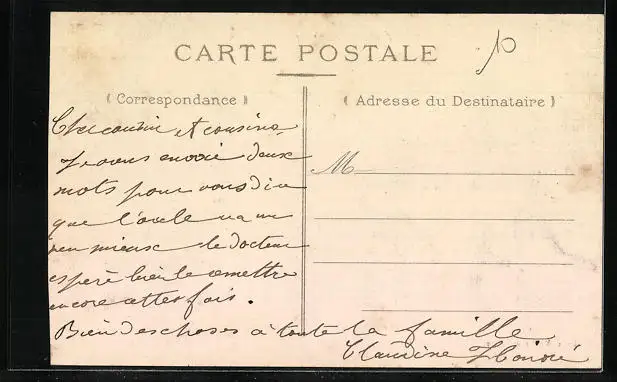 CARTE POSTALE
10
( Correspondance )
( Adresse du Destinataire )
Cher cousin et cousine
Je vous envoie deux
mots pour vous dire
que l'oncle va un
peu mieux le docteur
espère bien le remettre
encore cette fois.
Bien des choses à toute la famille
Claudine
M